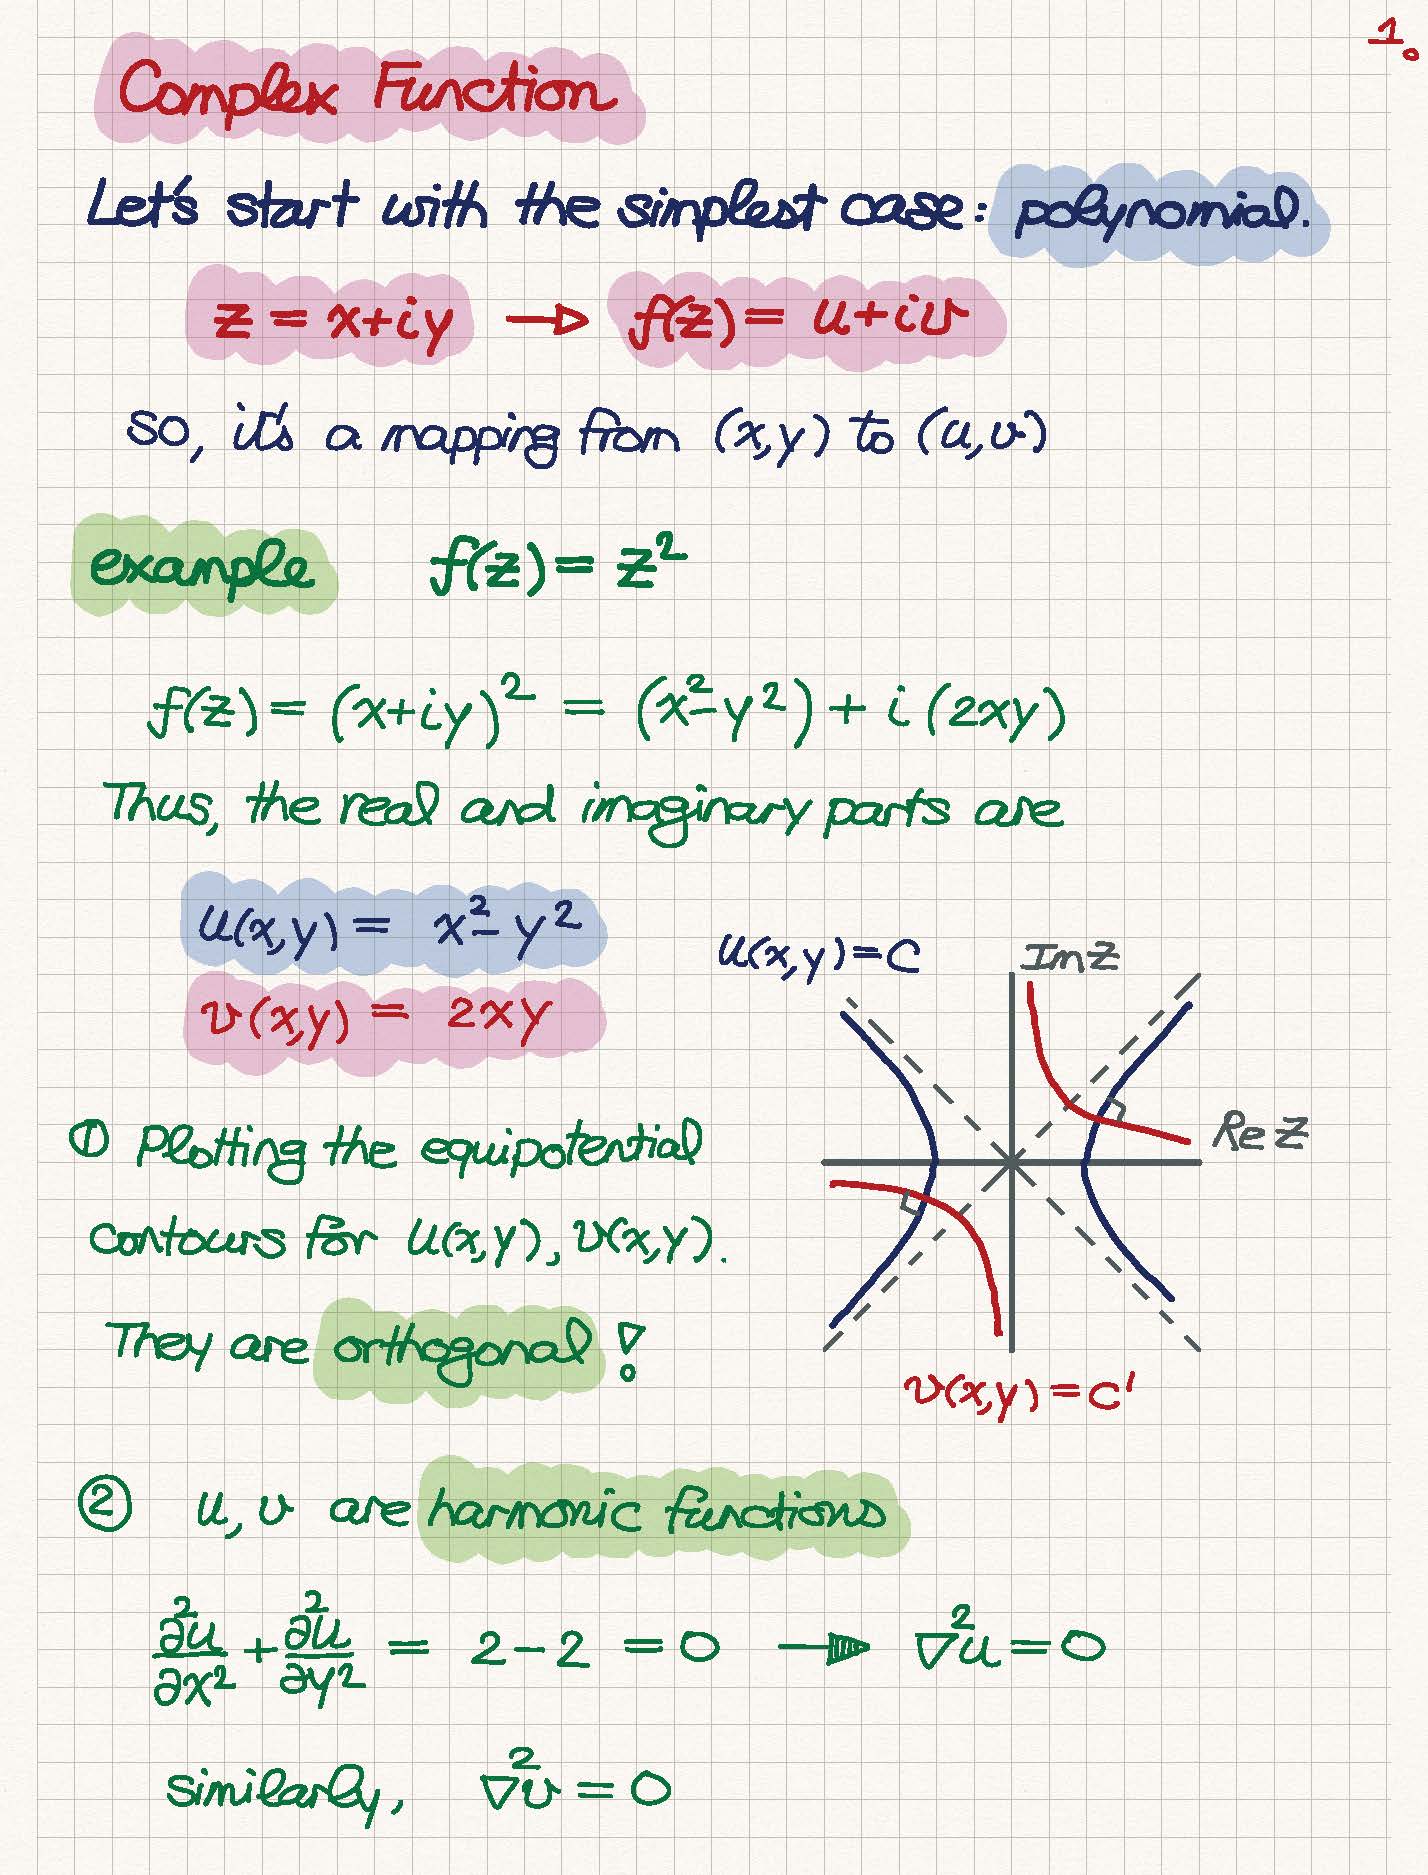 1.
Complex Function
Let's start with the simplest case: polynomial.
z = x+iy → f(z) = u+iv
so, it's a mapping from (x,y) to (u,v)
example f(z) = z²
f(z) = (x+iy)² = (x²-y²) + i(2xy)
Thus, the real and imaginary parts are
u(x,y) = x²-y²
v(x,y) = 2xy
u(x,y) = C
Im z
Re z
v(x,y) = C'
① Plotting the equipotential
contours for u(x,y), v(x,y).
They are orthogonal!
② u, v are harmonic functions
∂²u/∂x² + ∂²u/∂y² = 2-2 = 0 → ∇²u = 0
similarly, ∇²v = 0